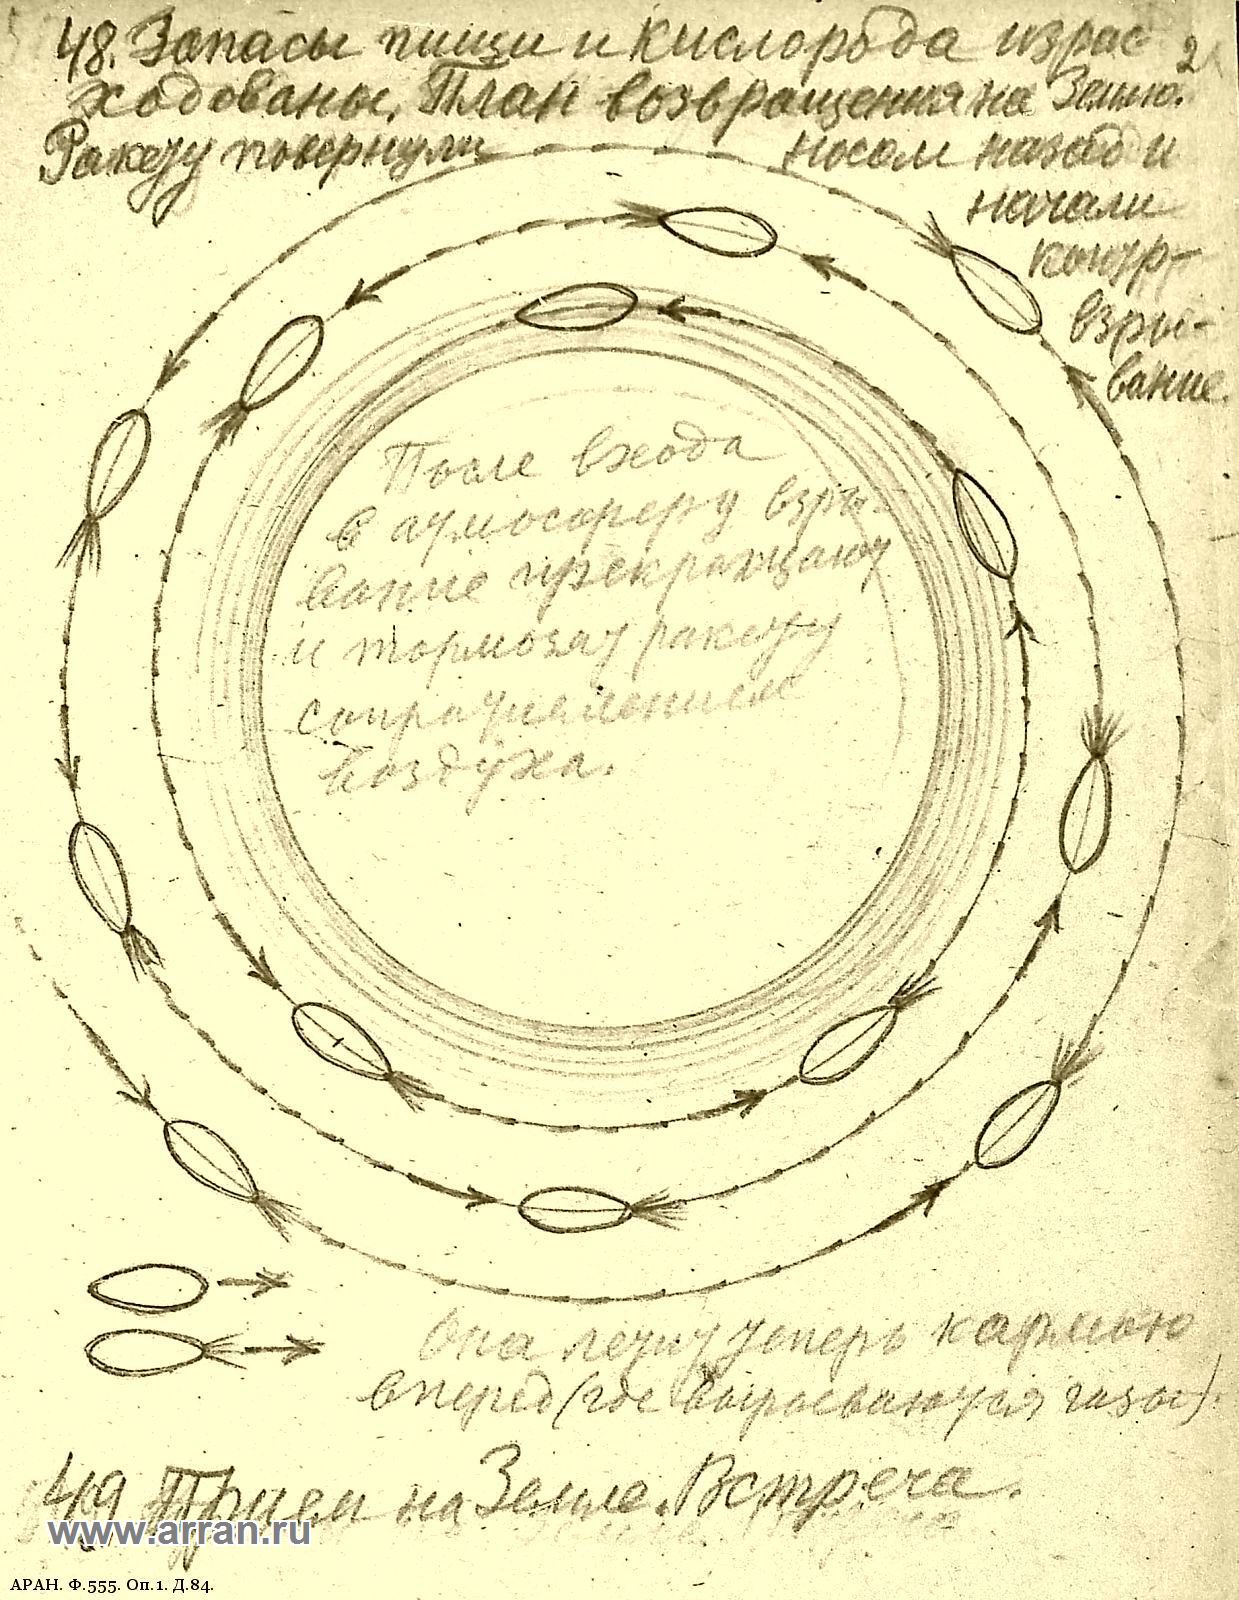 48. Запасы пищи и кислорода израс-
ходованы. План возвращения на Землю.
Ракету повернули носом назад и
начали
контр-
взры-
вание.
2
После входа
в атмосферу взры-
вание прекращают
и тормозят ракету
сопротивлением
воздуха.
Она летит теперь кармою
вперед (где вырываются газы).
49 Прием на Земле. Встреча.
www.arran.ru
АРАН. Ф.555. Оп.1. Д.84.